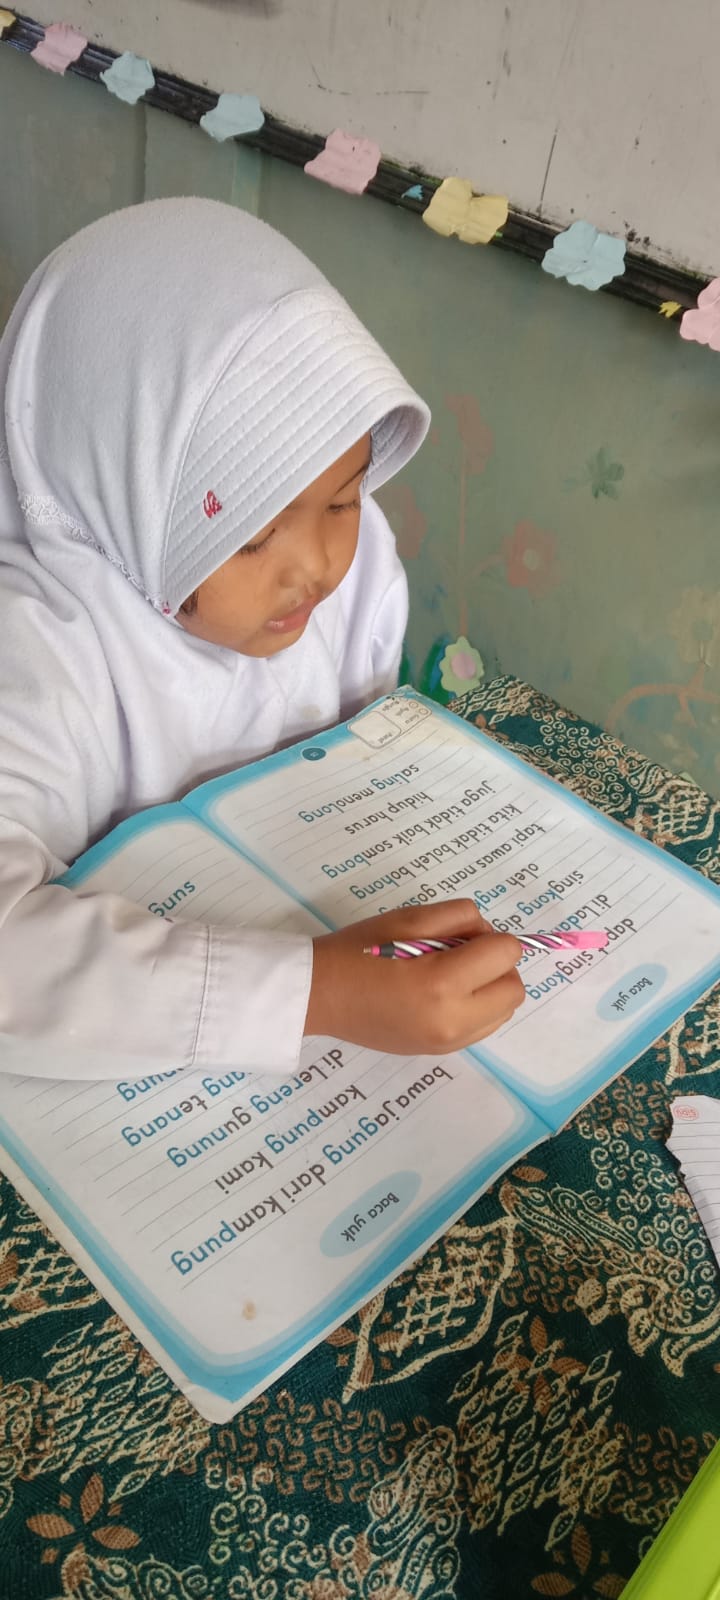 Baca yuk
dapat singkong
di ladang
singkong
oleh
tapi awas nanti
kita tidak boleh bohong
juga tidak baik sombong
hidup harus
saling menolong
Guru
Ayah
Bunda
Paraf
Baca yuk
bawa jagung dari kampung
kampung kami
di lereng gunung
tenang